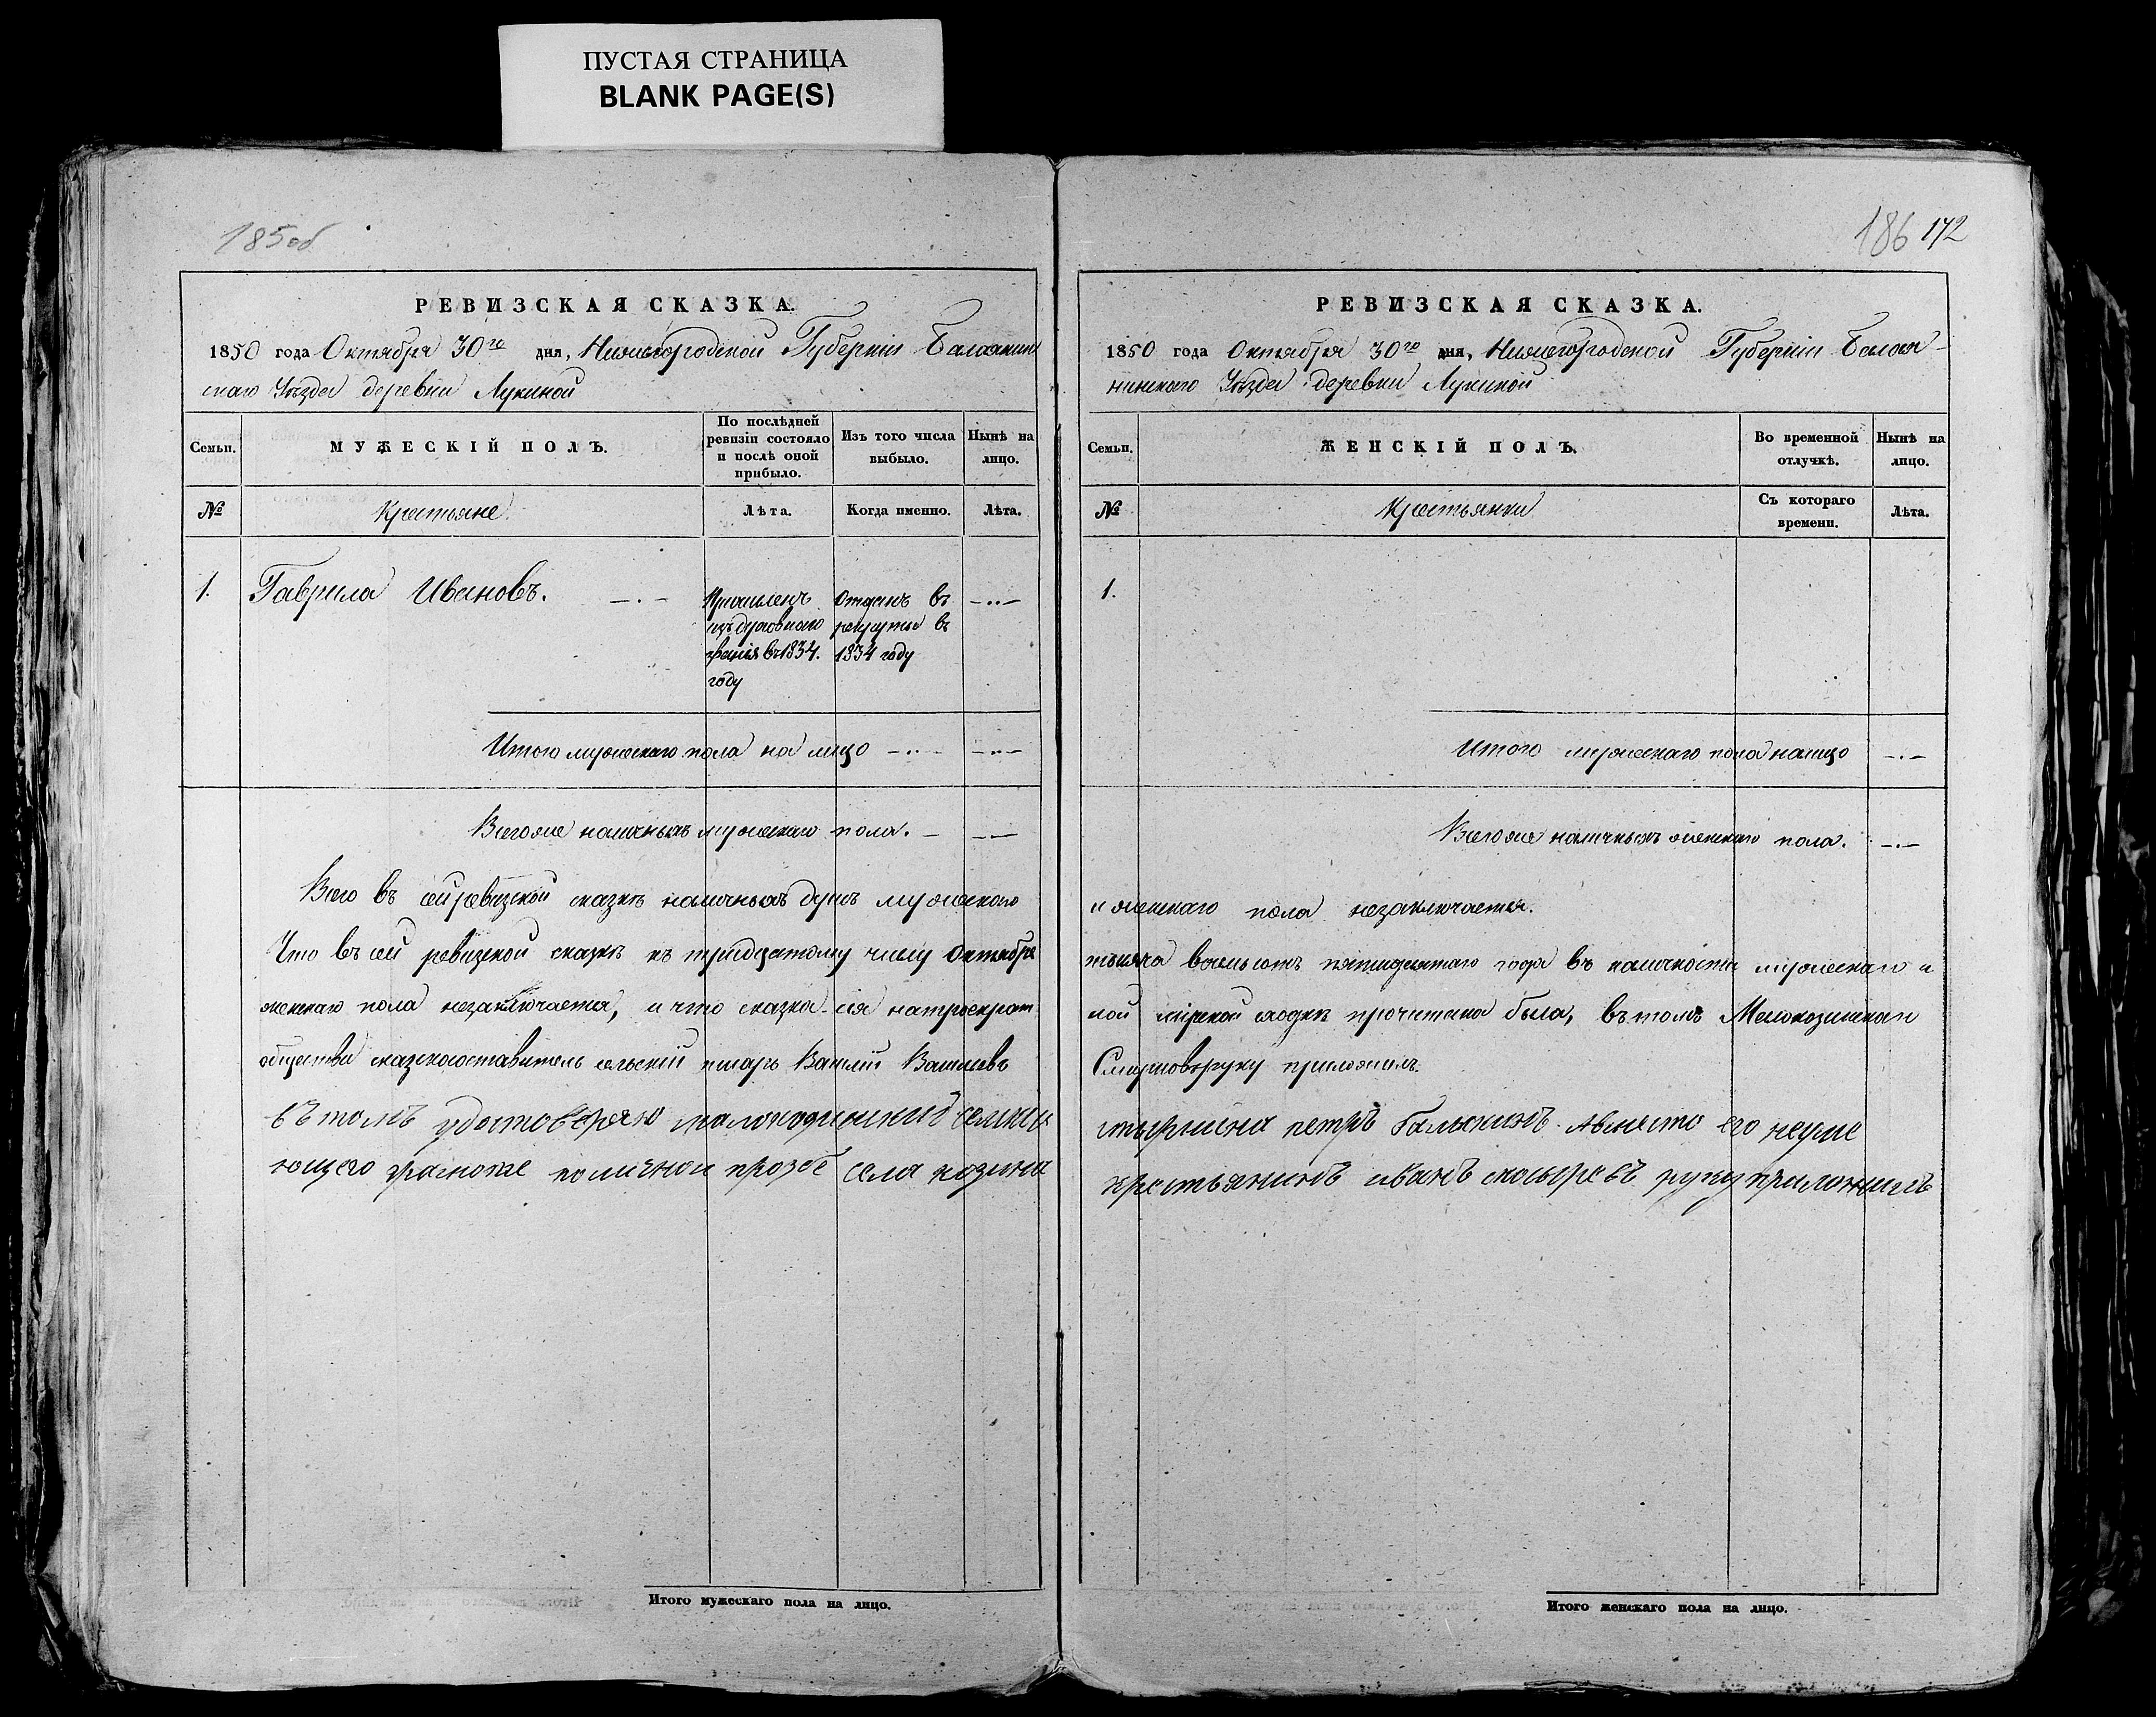 ПУСТАЯ СТРАНИЦА
BLANK PAGE(S)
185об
РЕВИЗСКАЯ СКАЗКА.
1850 года Октября 30го дня, Нижегородской Губерніи Балахнин
скаго Уѣзда деревни Лукиной
Семьи.
МУЖЕСКІЙ ПОЛЪ.
По послѣдней
ревизіи состояло
и послѣ оной
прибыло.
Изъ того числа
выбыло.
Нынѣ на
лицо.
№
Крестьяне
Лѣта.
Когда именно.
Лѣта.
1. Гаврила Ивановъ.
Причисленъ
изъ духовнаго
званія въ 1834.
году
Отданъ въ
рекруты въ
1834 году
Итого мужескаго пола на лицо
Всего же наличныхъ мужескаго пола.
Всего въ сей ревизской сказкѣ наличныхъ душъ мужескаго
Что въ сей ревизской сказкѣ къ тридцатому числу Октября
женскаго пола незаключается, и что сказка сія натроекрат
общества сказкосоставитель сельскій писарь Василій Васильевъ
въ томъ удостоверяю малокозинский селнои
ющего грамоте поличной прозбе села козина
186 172
РЕВИЗСКАЯ СКАЗКА.
1850 года Октября 30го дня, Нижегородской Губерніи Балах-
нинскаго Уѣзда деревни Лукиной
Семьи.
ЖЕНСКІЙ ПОЛЪ.
Во временной
отлучкѣ.
Нынѣ на
лицо.
№
Крестьянки
Съ котораго
времени.
Лѣта.
1.
Итого мужескаго пола налицо
Всего же наличныхъ женскаго пола.
и женскаго пола незаключается.
тысяча восемьсотъ пятидесятаго года въ наличности мужескаго и
ной мірской сходкѣ прочитана была, въ томъ Малокозинскаго
Смирновъ руку приложилъ.
старшина петръ Балыкинъ. Авместо его неуме
крестьянинъ иванъ руку приложилъ
Итого мужескаго пола на лицо.
Итого женскаго пола на лицо.